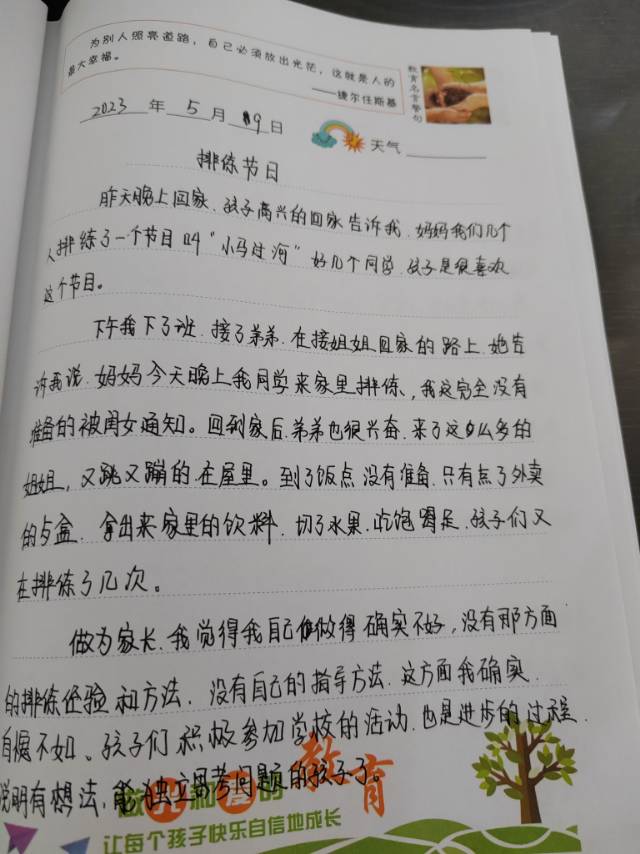 为别人照亮道路，自己必须放出光芒，这就是人的
最大幸福。
——捷尔任斯基
教育名言警句
2023年5月19日
天气
排练节目
昨天晚上回家.孩子高兴的回家告诉我.妈妈我们几个
人排练了一个节目叫“小马过河”好几个同学.孩子是很喜欢
这个节目。
下午我下了班.接了弟弟.在接姐姐回家的路上.她告
诉我说.妈妈今天晚上我同学来家里排练,我这完全没有
准备的被闺女通知。回到家后.弟弟也很兴奋.来了这么多的
姐姐，又跳又蹦的.在屋里。到了饭点.没有准备.只有点了外卖
的 盒.拿出来家里的饮料.切了水果.吃饱喝足.孩子们又
在排练了几次。
做为家长.我觉得我自己做得确实不好,没有那方面
的排练经验和方法.没有自己的指导方法.这方面我确实
自愧不如、孩子们积极参加学校的活动.也是进步的过程.
说明有想法,能独立思考问题的孩子了。
做 和 的教育
让每个孩子快乐自信地成长